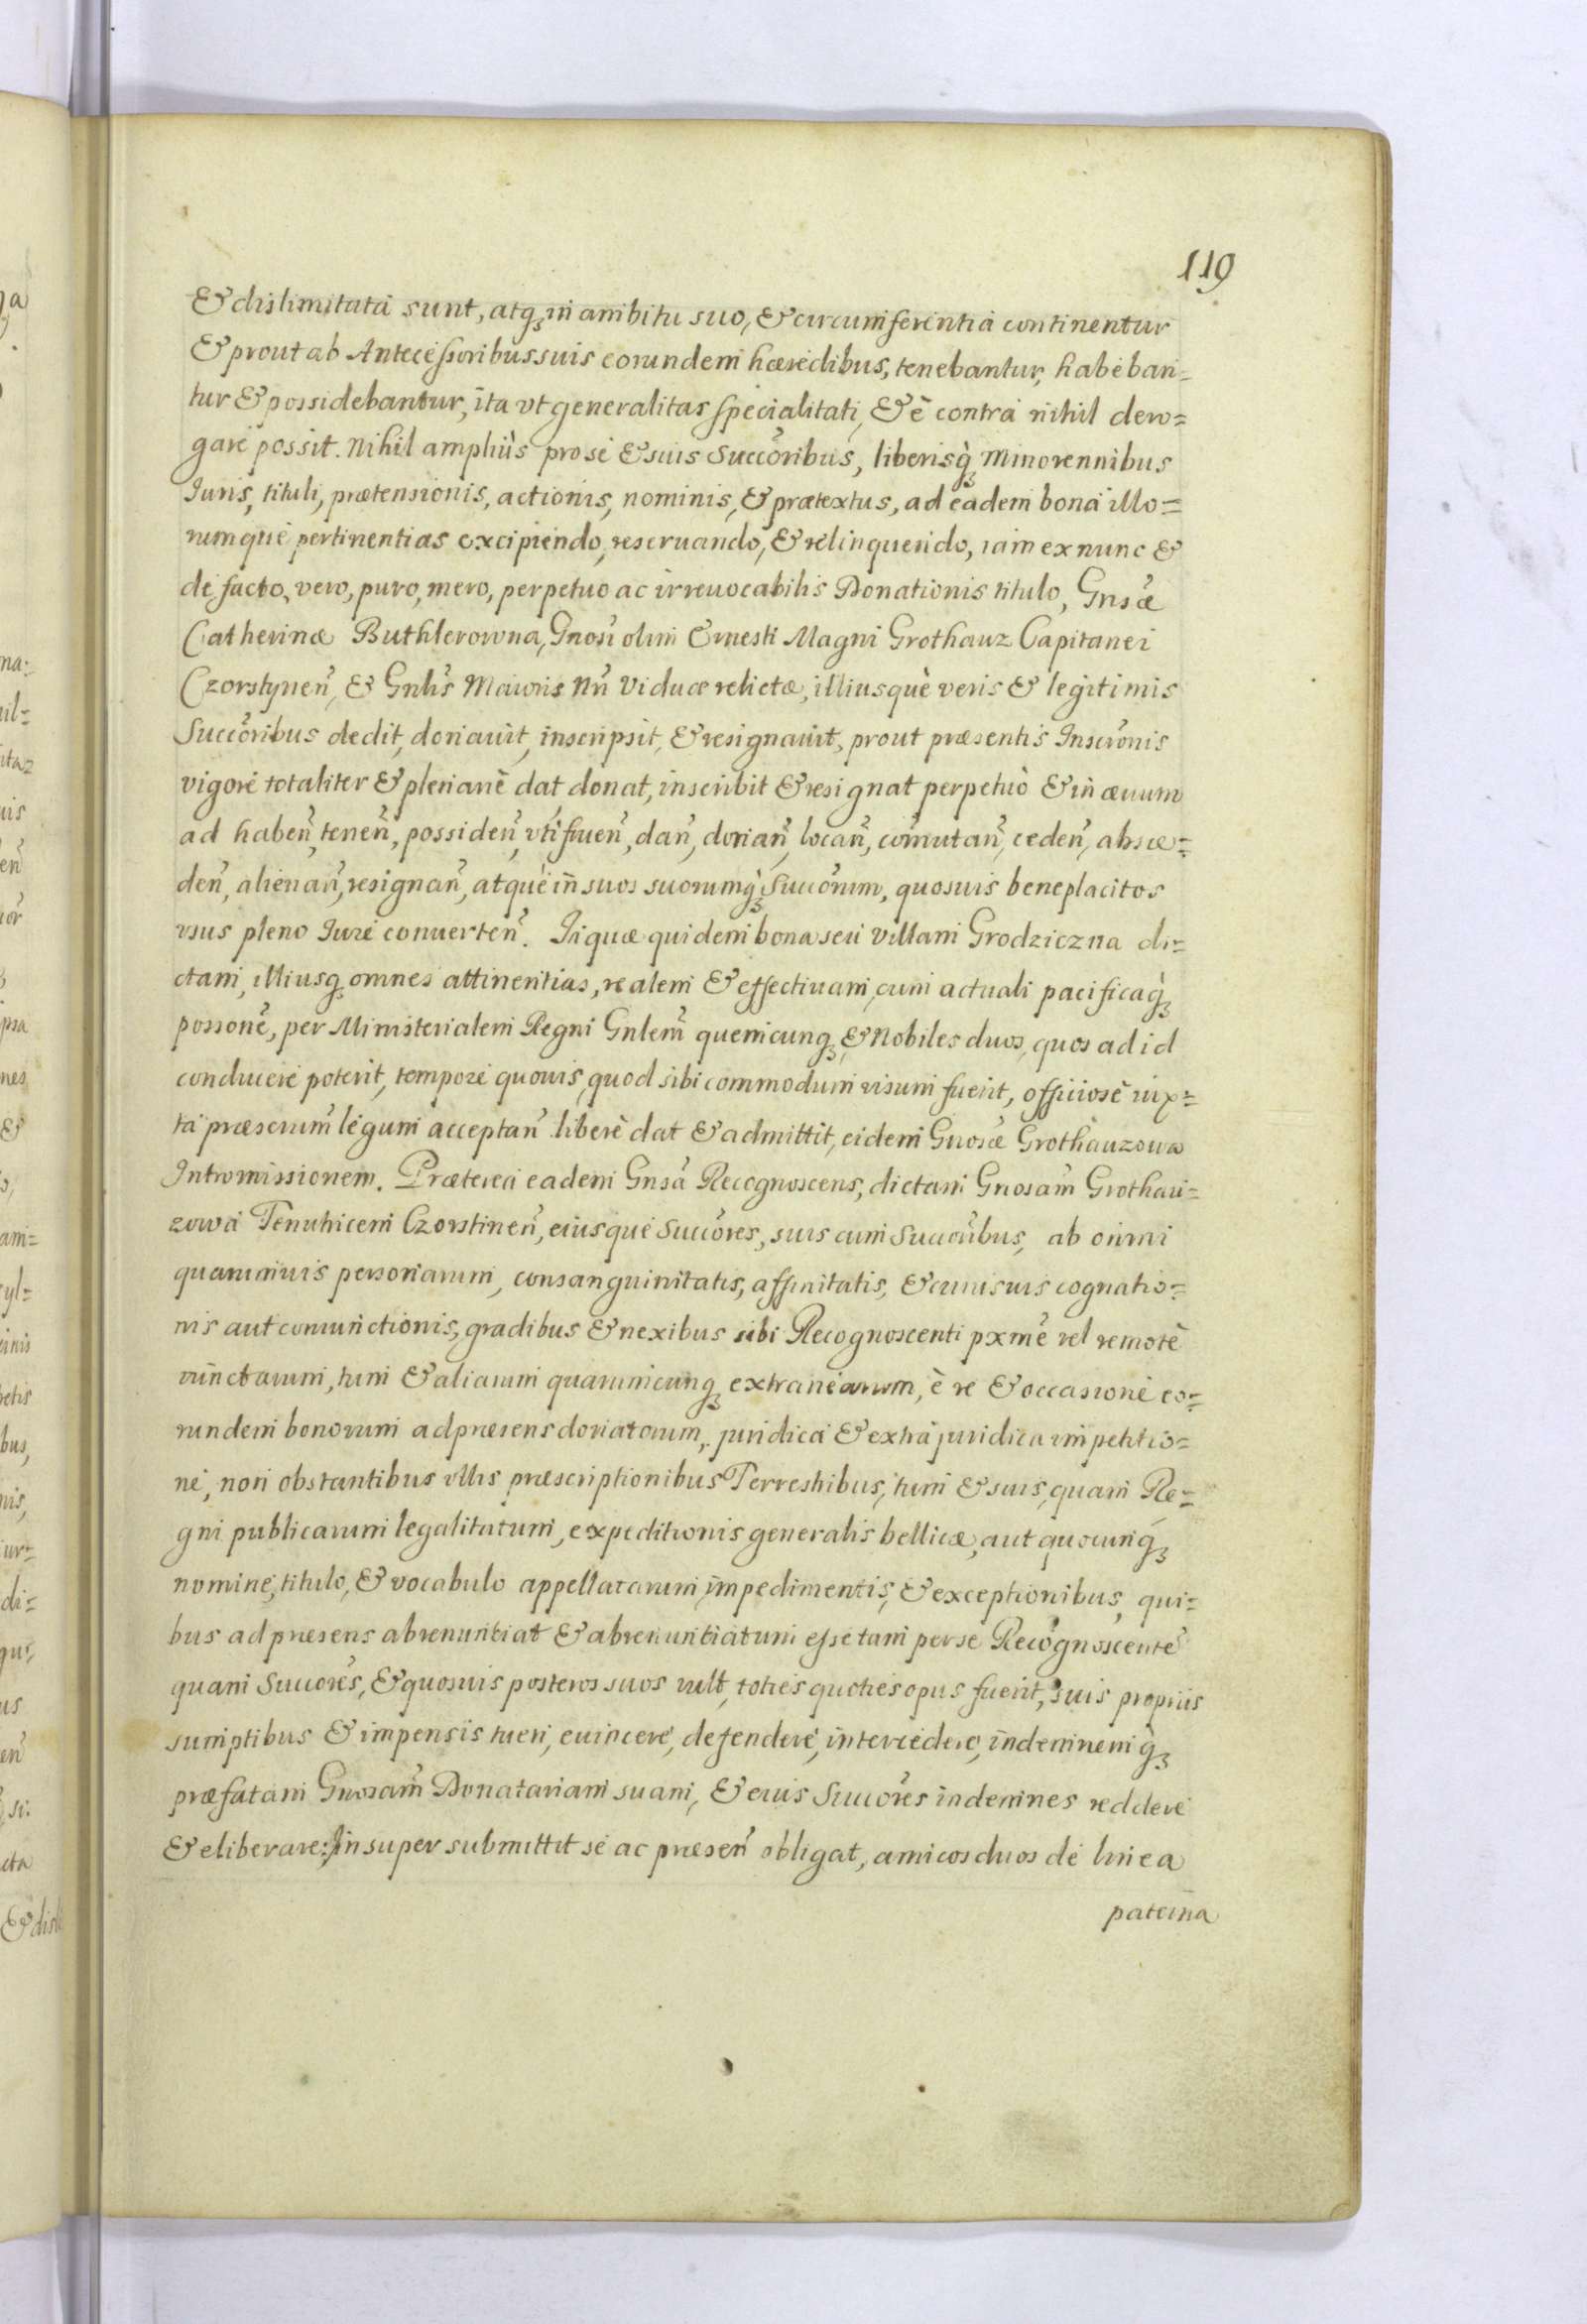 119
& dislimitata sunt, atq, in ambitu suo, & circumferentia continentur
& prout ab Antecessoribus suis eorundem hæredibus, tenebantur, habeban=
tur & possidebantur, ita vt generalitas specialitati, & è contra nihil dero=
gare possit. Nihil ampliùs pro se & suis Succoribus, liberisq, Minorennibus
Iuris, tituli, prætensionis, actionis, nominis, & prætextus, ad eadem bona illo=
rumque pertinentias excipiendo, reseruando, & relinquendo, iam ex nunc &
de facto, vero, puro, mero, perpetuo ac irreuocabilis Donationis titulo, Gnsæ
Catherinæ Buthlerowna, Gnosi olim Ernesti Magni Grothauz Capitanei
Czorstynen, & Gnlis Maioris Nri Viduæ relictæ, illiusquè veris & legitimis
Succoribus dedit, donauit, inscripsit, & resignauit, prout præsentis Inscronis
vigore totaliter & plenariè dat donat, inscribit & resignat perpetuò & in æuum
ad haben, tenen, possiden, vti fruen, dan, donan, locan, comutan, ceden, absce=
den, alienan, resignan, atquè in suos suorumq, Succorum, quosuis beneplacitos
vsus pleno Iure conuerten. In quæ quidem bona seu Villam Grodziczna di=
ctam, illiusq, omnes attinentias, realem & effectiuam, cum actuali pacificaq,
possone, per Ministerialem Regni Gnlem quemcunq, & Nobiles duos, quos ad id
conducere poterit, tempore quouis, quod sibi commodum visum fuerit, officiosè iux=
ta præscrum legum acceptan liberè dat & admittit, eidem Gnosæ Grothauzowa
Intromissionem. Præterea eadem Gnsa Recognoscens, dictam Gnosam Grothau=
zowa Tenutricem Czorstinen, eiusque Succores, suis cum Succoribus, ab omni
quarumuis personarum, consanguinitatis, affinitatis, & cuiusuis cognatio=
nis aut coniunctionis, gradibus & nexibus sibi Recognoscenti pxme vel remotè
iunctarum, tum & aliarum quarumcunq, extranearum, è re & occasione eo=
rundem bonorum ad præsens donatorum, juridica & extra juridica impetitio=
ne, non obstantibus vllis præscriptionibus Terrestribus, tum & suis, quam Re=
gni publicarum legalitatum, expeditionis generalis bellicæ, aut quocunq,
nomine, titulo, & vocabulo appellatarum impedimentis, & exceptionibus, qui=
bus ad præsens abrenuntiat & abrenuntiatum esse tam per se Recognoscente
quam Succores, & quosuis posteros suos vult, toties quoties opus fuerit, suis propriis
sumptibus & impensis tueri, euincere, defendere, intercedere, indemnemq,
præfatam Gnosam Donatariam suam, & eius Succores indemnes reddere
& eliberare: Insuper submittit se ac præsen obligat, amicos duos de linea
paterna